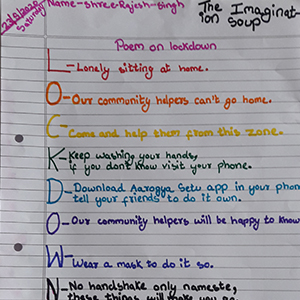 Name-Shree-Rajesh-Singh
The Imaginat-
ion Soup
Saturday
Poem on lockdown
L-Lonely sitting at home.
O-Our community helpers can't go home.
C-Come and help them from this zone.
K-Keep washing your hands,
if you don't know visit your phone.
D-Download Aarogya Setu app in your phone
tell your friends to do it own.
O-Our community helpers will be happy to know
W-Wear a mask to do it so.
N-No handshake only nameste,
these things will make you